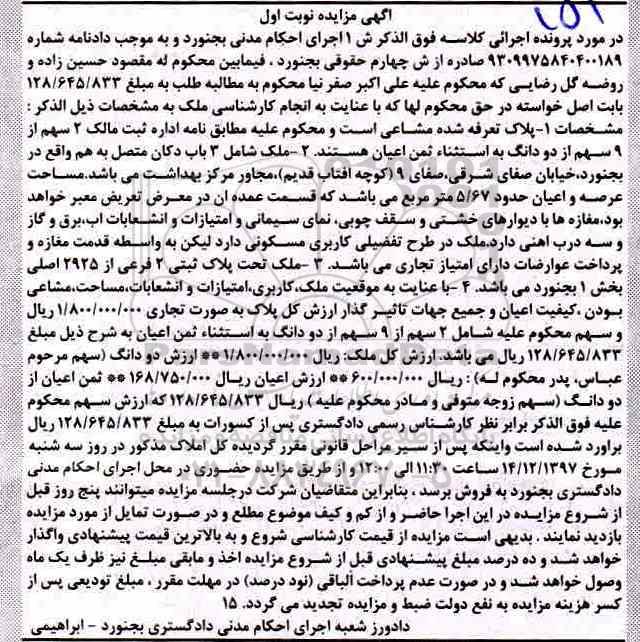 ۱۵۱
آگهی مزایده نوبت اول
در مورد پرونده اجرائی کلاسه فوق الذکر ش ۱ اجرای احکام مدنی بجنورد و به موجب دادنامه شماره
۹۳۰۹۹۷۵۸۴۰۴۰۰۱۸۹ صادره از ش چهارم حقوقی بجنورد ، فیمابین محکوم له مقصود حسین زاده و
روضه گل رضایی که محکوم علیه علی اکبر صفر نیا محکوم به مطالبه طلب به مبلغ ۱۲۸/۶۴۵/۸۳۳
بابت اصل خواسته در حق محکوم لها که با عنایت به انجام کارشناسی ملک به مشخصات ذیل الذکر :
مشخصات ۱-پلاک تعرفه شده مشاعی است و محکوم علیه مطابق نامه اداره ثبت مالک ۲ سهم از
۹ سهم از دو دانگ به استثناء ثمن اعیان هستند. ۲ -ملک شامل ۳ باب دکان متصل به هم واقع در
بجنورد،خیابان صفای شرقی،صفای ۹ (کوچه آفتاب قدیم)،مجاور مرکز بهداشت می باشد.مساحت
عرصه و اعیان حدود ۵/۶۷ متر مربع می باشد که قسمت عمده ان در معرض تعریض معبر خواهد
بود،مغازه ها با دیوارهای خشتی و سقف چوبی، نمای سیمانی و امتیازات و انشعابات اب،برق و گاز
و سه درب اهنی دارد.ملک در طرح تفضیلی کاربری مسکونی دارد لیکن به واسطه قدمت مغازه و
پرداخت عوارضات دارای امتیاز تجاری می باشد. ۳ -ملک تحت پلاک ثبتی ۲ فرعی از ۲۹۲۵ اصلی
بخش ۱ بجنورد می باشد. ۴ -با عنایت به موقعیت ملک،کاربری،امتیازات و انشعابات،مساحت،مشاعی
بودن ،کیفیت اعیان و جمیع جهات تاثیر گذار ارزش کل پلاک به صورت تجاری ۱/۸۰۰/۰۰۰/۰۰۰ ریال
و سهم محکوم علیه شامل ۲ سهم از ۹ سهم از دو دانگ به استثناء ثمن اعیان به شرح ذیل مبلغ
۱۲۸/۶۴۵/۸۳۳ ریال می باشد. ارزش کل ملک: ریال ۱/۸۰۰/۰۰۰/۰۰۰ ** ارزش دو دانگ (سهم مرحوم
عباس، پدر محکوم له) : ریال ۶۰۰/۰۰۰/۰۰۰ ** ارزش اعیان ریال ۱۶۸/۷۵۰/۰۰۰ ** ثمن اعیان از
دو دانگ (سهم زوجه متوفی و مادر محکوم علیه ) ریال ۱۲۸/۶۴۵/۸۳۳ که ارزش سهم محکوم
علیه فوق الذکر برابر نظر کارشناس رسمی دادگستری پس از کسورات به مبلغ ۱۲۸/۶۴۵/۸۳۳ ریال
براورد شده است واینکه پس از سیر مراحل قانونی مقرر گردیده کل املاک مذکور در روز سه شنبه
مورخ ۱۴/۱۲/۱۳۹۷ ساعت ۱۱:۳۰ الی ۱۲:۰۰ و از طریق مزایده حضوری در محل اجرای احکام مدنی
دادگستری بجنورد به فروش برسد ، بنابراین متقاضیان شرکت درجلسه مزایده میتوانند پنج روز قبل
از شروع مزایده در این اجرا حاضر و از کم و کیف موضوع مطلع و در صورت تمایل از مورد مزایده
بازدید نمایند . بدیهی است مزایده از قیمت کارشناسی شروع و به بالاترین قیمت پیشنهادی واگذار
خواهد شد و ده درصد مبلغ پیشنهادی قبل از شروع مزایده اخذ و مابقی مبلغ نیز ظرف یک ماه
وصول خواهد شد و در صورت عدم پرداخت الباقی (نود درصد) در مهلت مقرر ، مبلغ تودیعی پس از
کسر هزینه مزایده به نفع دولت ضبط و مزایده تجدید می گردد. ۱۵
دادورز شعبه اجرای احکام مدنی دادگستری بجنورد - ابراهیمی